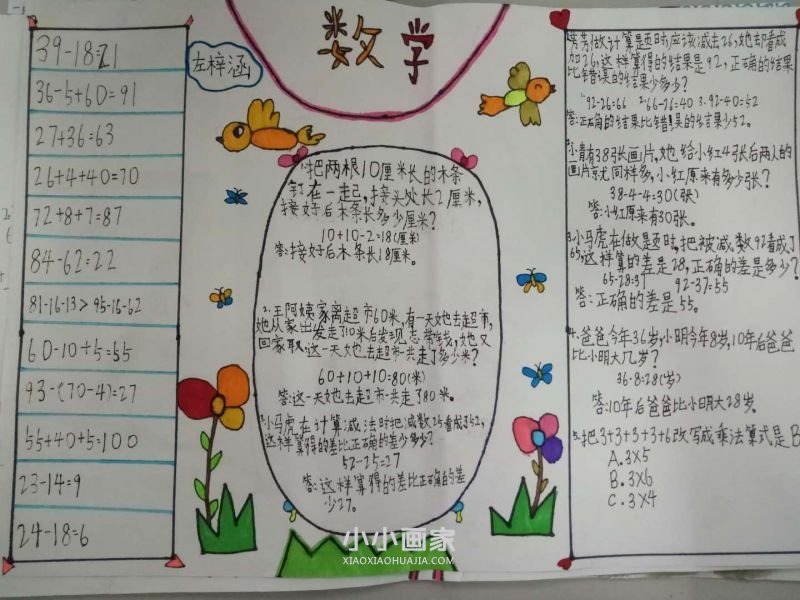 数学
左梓涵
39-18=21
36-5+60=91
27+36=63
26+4+40=70
72+8+7=87
84-62=22
81-16-13>95-16-62
60-10+5=55
93-(70-4)=27
55+40+5=100
23-14=9
24-18=6
1.把两根10厘米长的木条
钉在一起,接头处长2厘米,
接好后木条长多少厘米?
10+10-2=18(厘米)
答:接好后木条长18厘米。
2.王阿姨家离超市60米,有一天她去超市,
她从家出发走了10米后发现忘带钱,她又
回家取,这一天她去超市一共走了多少米?
60+10+10=80(米)
答:这一天她去超市一共走了80米。
3.小马虎在计算减法时把减数25看成了52,
这样算得的差比正确的差少多少?
52-25=27
答:这样算得的差比正确的差
少27。
芳芳做计算题时应该减去26,她却看成
加26,这样算得的结果是92,正确的结果
比错误的结果少多少?
1.92-26=66 2.66-26=40 3.92-40=52
答:正确的结果比错误的结果少52。
2.小青有38张画片,她给小红4张后两人的
画片就同样多,小红原来有多少张?
38-4-4=30(张)
答:小红原来有30张。
3.小马虎在做题时,把被减数92看成了
65,这样算的差是28,正确的差是多少?
65-28=37 92-37=55
答:正确的差是55。
4.爸爸今年36岁,小明今年8岁,10年后爸爸
比小明大几岁?
36-8=28(岁)
答:10年后爸爸比小明大28岁。
5.把3+3+3+3+6改写成乘法算式是B
A.3×5
B.3×6
C.3×4
小小画家
XIAOXIAOHUAJIA.COM